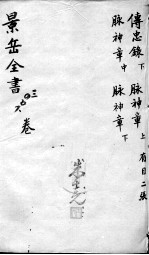 傳忠錄下 脉神章上 有目二張
脉神章中 脉神章下
景岳全書 三之六 卷